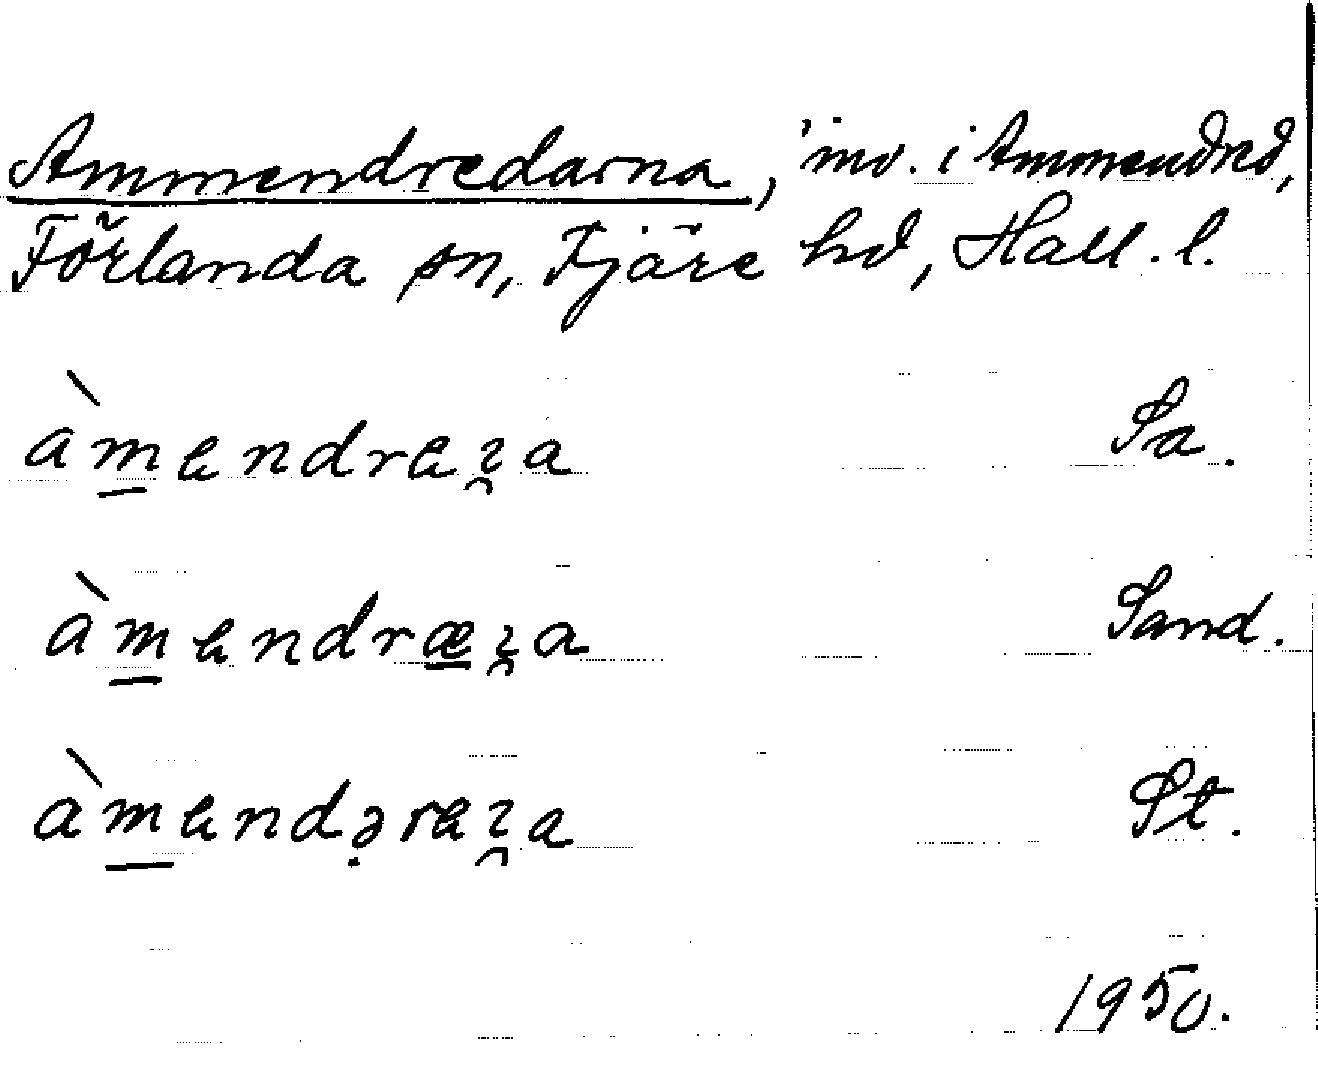 Ammendredarna, 'inv. i Ammendred,
Förlanda sn, Fjäre hd, Hall. l.
àmendreza Sa.
àmendræza Sand.
àmendəreza St.
1950.